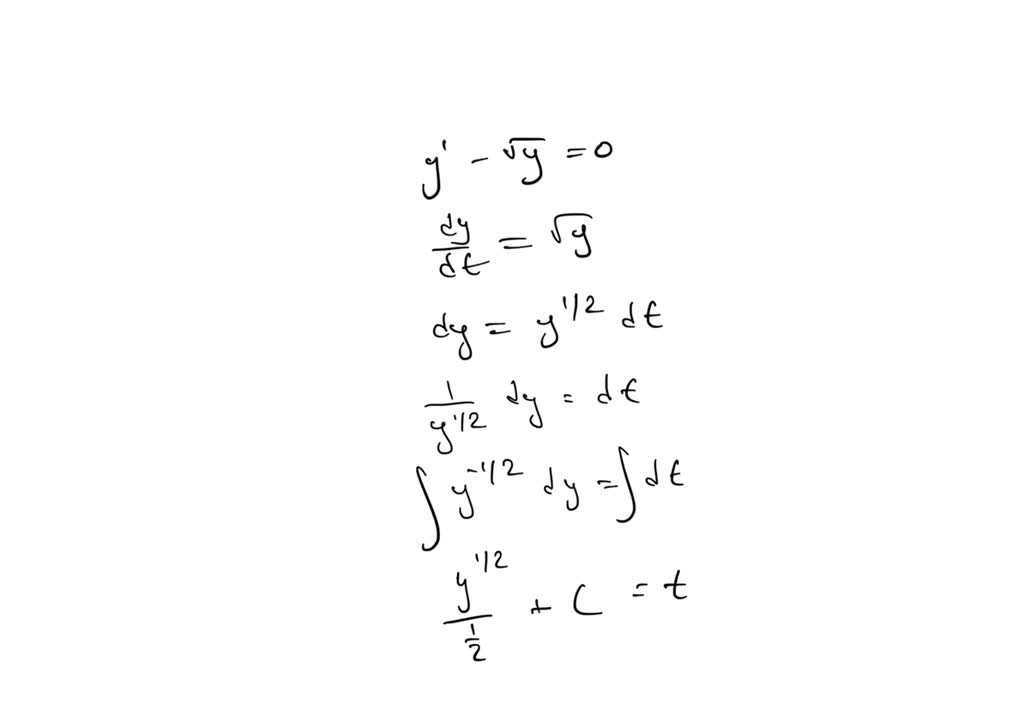 y' - √y = 0
dy/dt = √y
dy = y^1/2 dt
1/y^1/2 dy = dt
∫ y^-1/2 dy = ∫ dt
y^1/2 / (1/2) + C = t